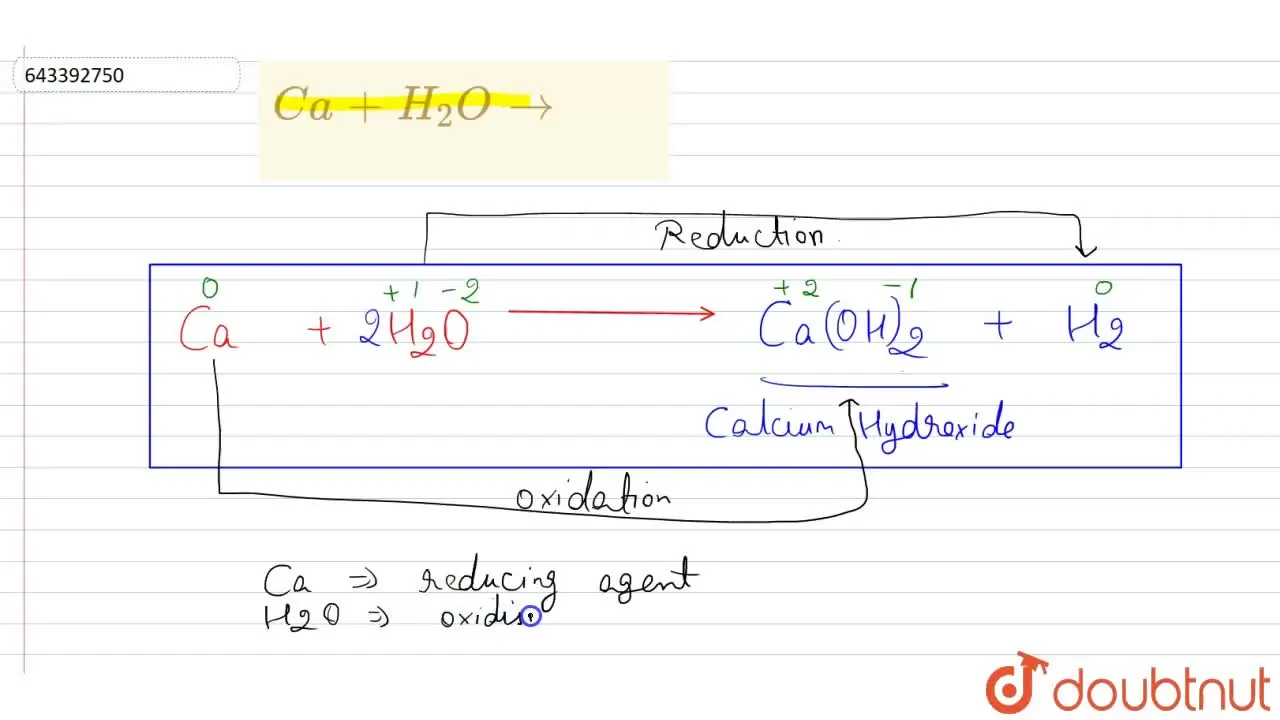 643392750
Ca + H₂O →
Reduction
0 +1 -2 +2 -1 0
Ca + 2H2O → Ca(OH)2 + H2
Calcium Hydroxide
oxidation
Ca ⇒ reducing agent
H2O ⇒ oxidis
doubtnut